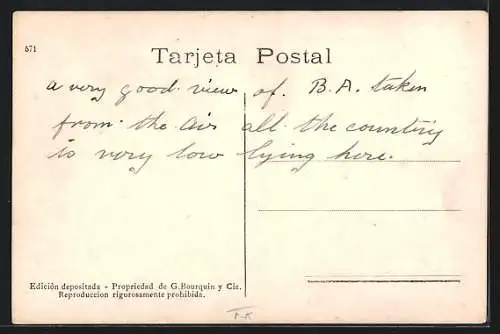 671
Tarjeta Postal
a very good view of. B.A. taken
from the air all the country
is very low lying here.
Edición depositada - Propriedad de G. Bourquin y Cie.
Reproduccion rigurosamente prohibida.